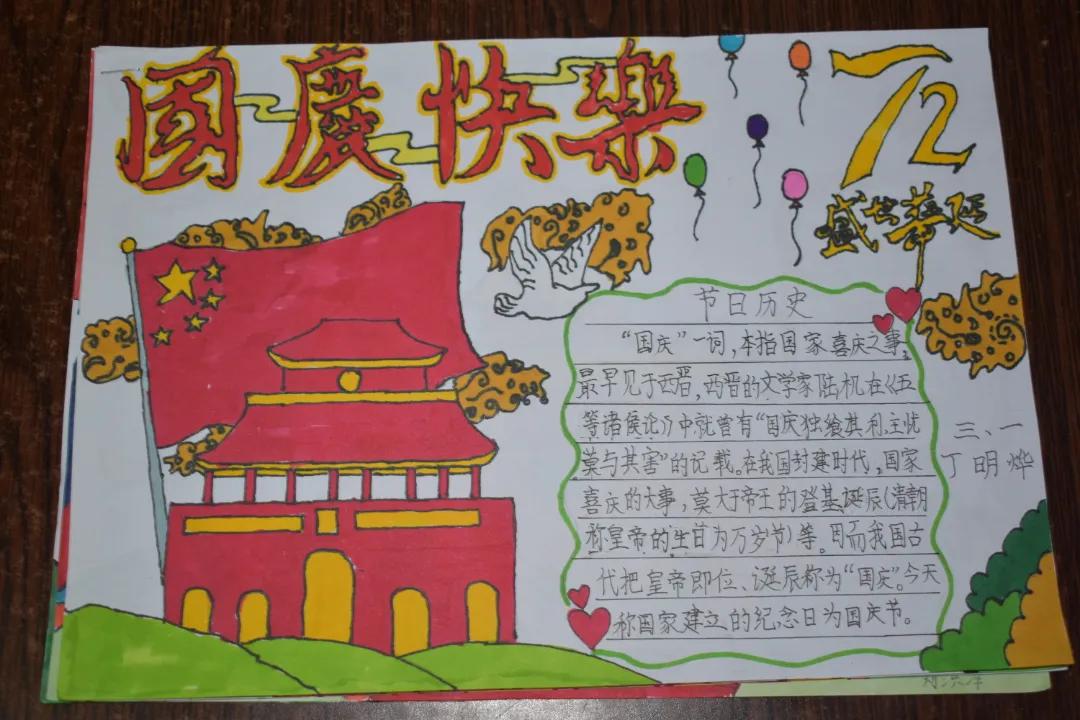 國慶快樂
72
盛世華诞
节日历史
“国庆”一词,本指国家喜庆之事,
最早见于西晋,西晋的文学家陆机在《五
等诸侯论》中就曾有“国庆独飨其利,主忧
莫与其害”的记载。在我国封建时代,国家
喜庆的大事,莫大于帝王的登基诞辰(清朝
称皇帝的生日为万岁节)等。因而我国古
代把皇帝即位、诞辰称为“国庆”。今天
称国家建立的纪念日为国庆节。
三、一
丁明烨